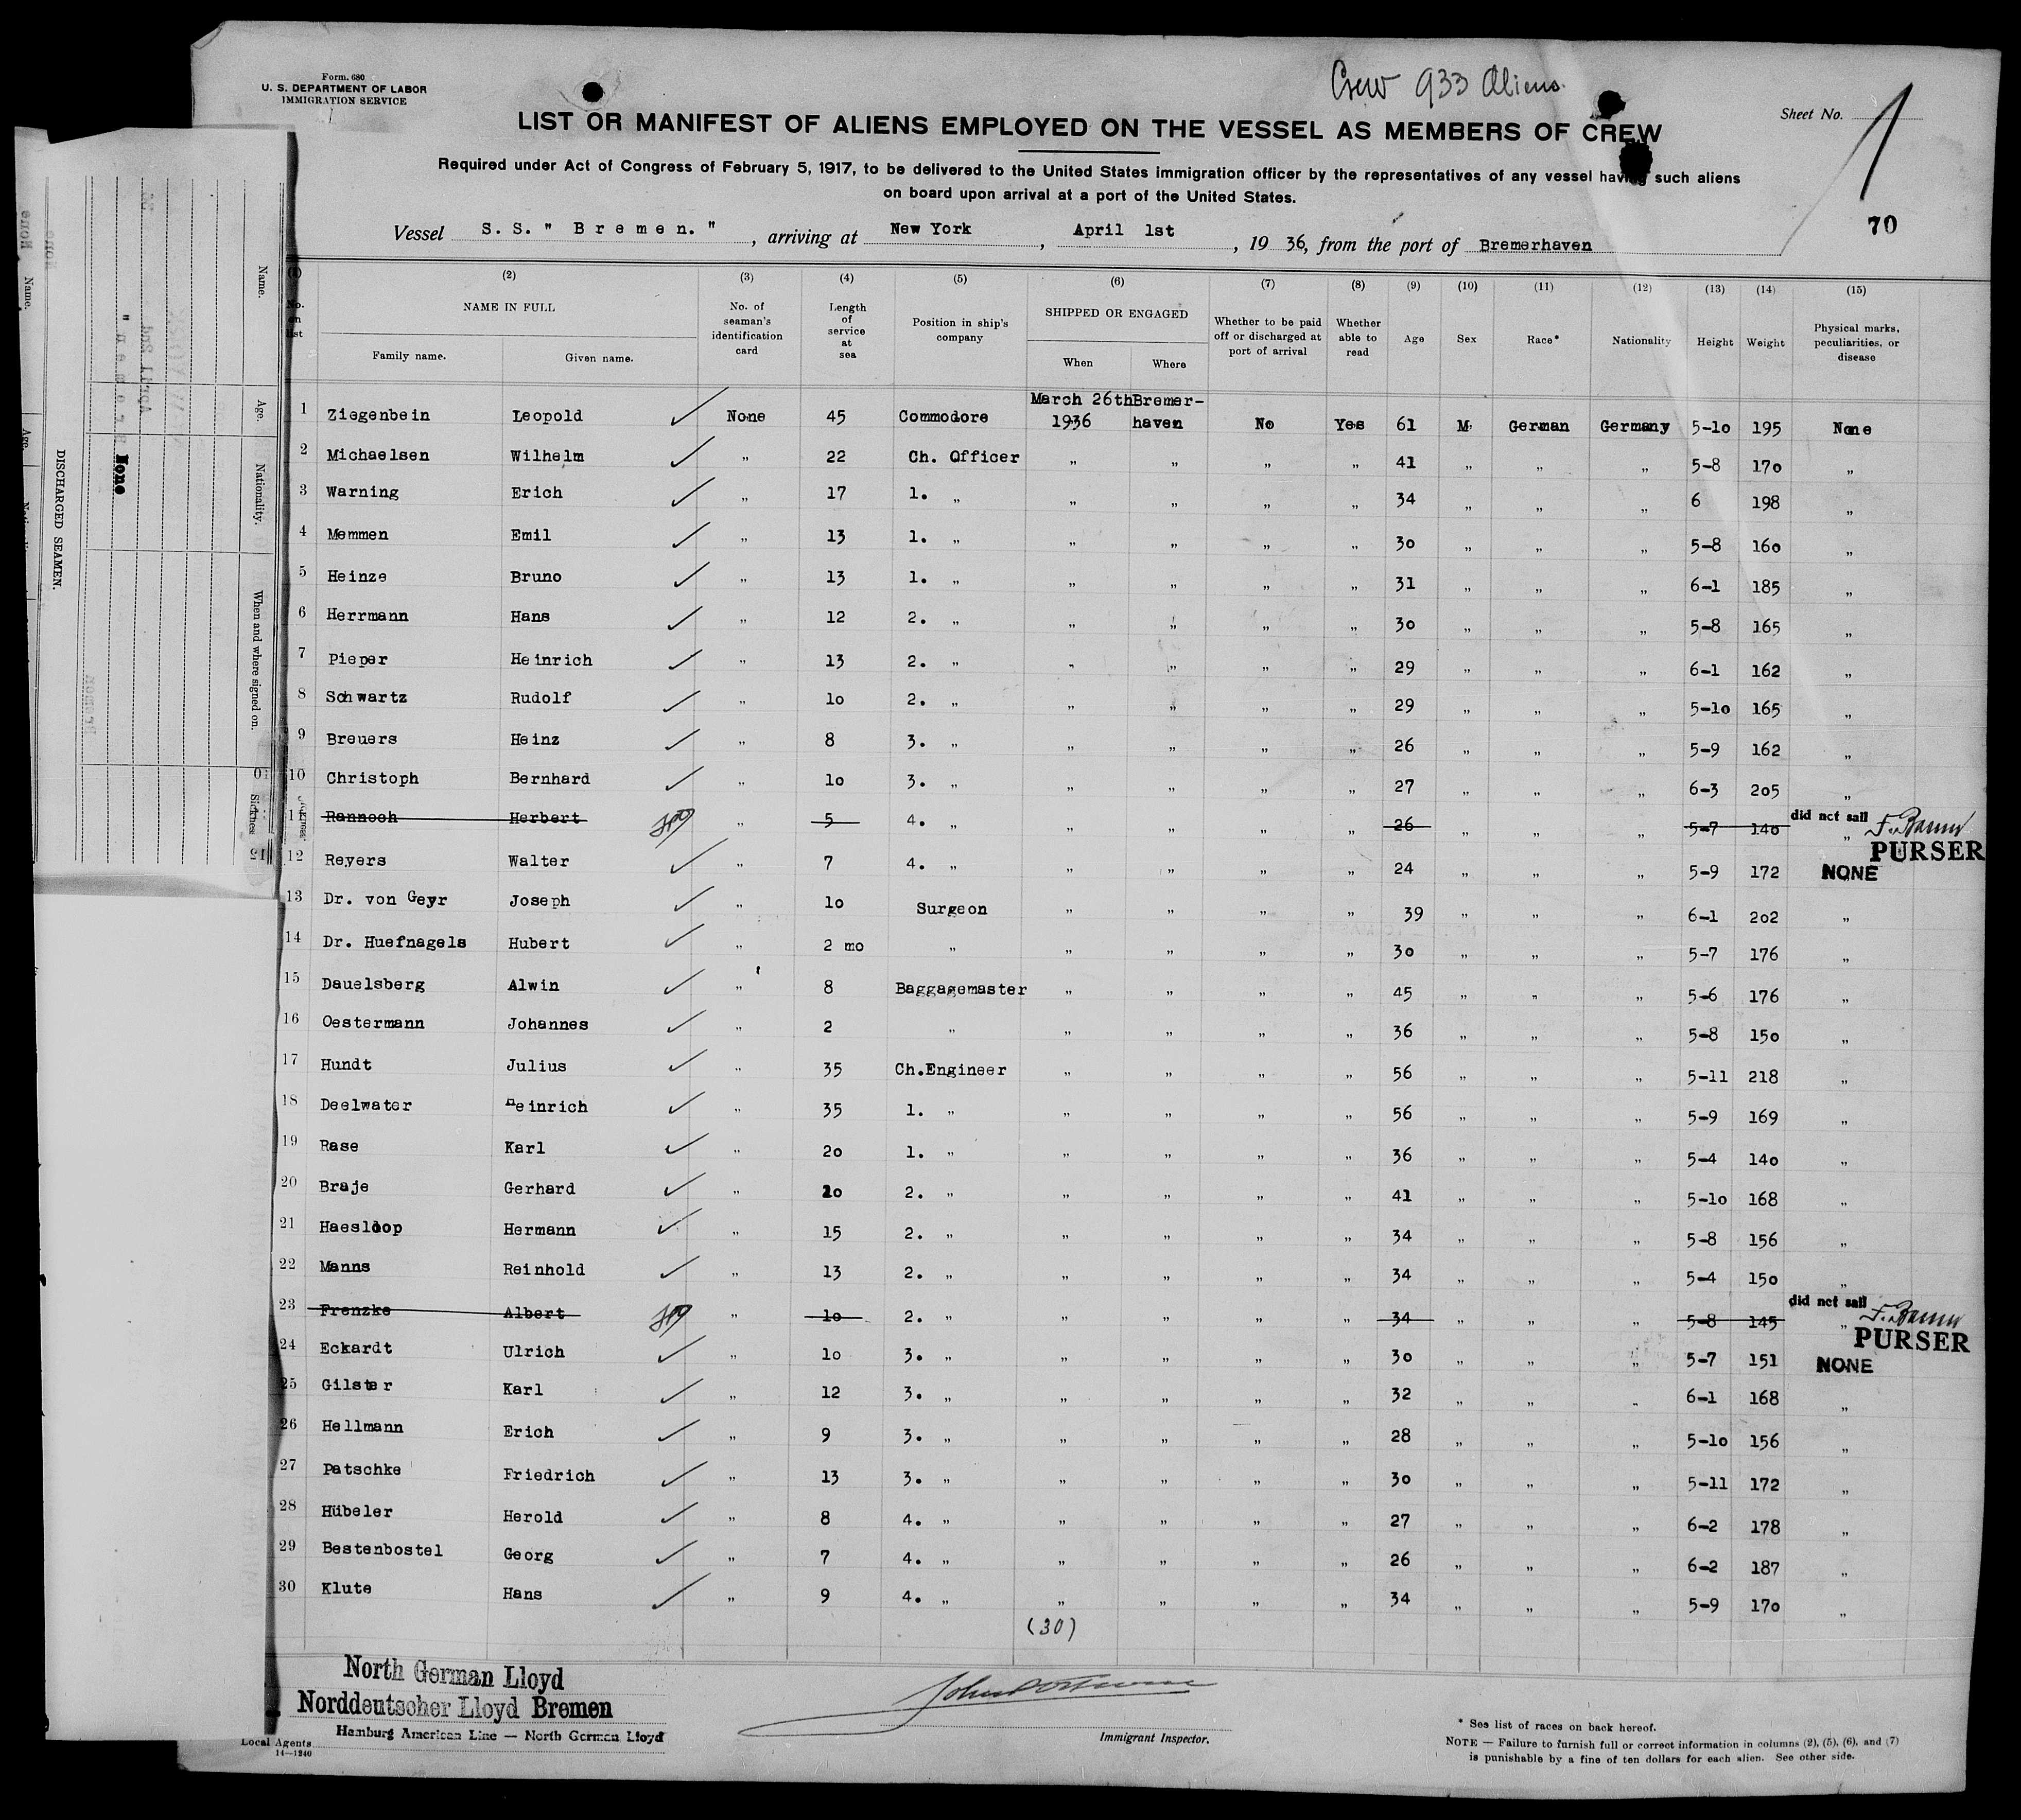 Form. 680
U. S. DEPARTMENT OF LABOR
IMMIGRATION SERVICE
Crew 933 Aliens.
Sheet No. 1
LIST OR MANIFEST OF ALIENS EMPLOYED ON THE VESSEL AS MEMBERS OF CREW
Required under Act of Congress of February 5, 1917, to be delivered to the United States immigration officer by the representatives of any vessel having such aliens
on board upon arrival at a port of the United States.
70
Vessel S. S. " B r e m e n. " , arriving at New York , April 1st , 19 36, from the port of Bremerhaven
(2) (3) (4) (5) (6) (7) (8) (9) (10) (11) (12) (13) (14) (15)
No. on list NAME IN FULL Family name. Given name. No. of seaman's identification card Length of service at sea Position in ship's company SHIPPED OR ENGAGED When Where Whether to be paid off or discharged at port of arrival Whether able to read Age Sex Race* Nationality Height Weight Physical marks, peculiarities, or disease
1 Ziegenbein Leopold None 45 Commodore March 26th 1936 Bremer-haven No Yes 61 M. German Germany 5-10 195 None
2 Michaelsen Wilhelm " 22 Ch. Officer " " " " 41 " " " 5-8 170 "
3 Warning Erich " 17 1. " " " " " 34 " " " 6 198 "
4 Memmen Emil " 13 1. " " " " " 30 " " " 5-8 160 "
5 Heinze Bruno " 13 1. " " " " " 31 " " " 6-1 185 "
6 Herrmann Hans " 12 2. " " " " " 30 " " " 5-8 165 "
7 Pieper Heinrich " 13 2. " " " " " 29 " " " 6-1 162 "
8 Schwartz Rudolf " 10 2. " " " " " 29 " " " 5-10 165 "
9 Breuers Heinz " 8 3. " " " " " 26 " " " 5-9 162 "
10 Christoph Bernhard " 10 3. " " " " " 27 " " " 6-3 205 "
11 Rannoch Herbert " 5 4. " " " " " 26 " " " 5-7 140 " did not sail
PURSER
12 Reyers Walter " 7 4. " " " " " 24 " " " 5-9 172 NONE
13 Dr. von Geyr Joseph " 10 Surgeon " " " " 39 " " " 6-1 202 "
14 Dr. Huefnagels Hubert " 2 mo " " " " " 30 " " " 5-7 176 "
15 Dauelsberg Alwin " 8 Baggagemaster " " " " 45 " " " 5-6 176 "
16 Oestermann Johannes " 2 " " " " " 36 " " " 5-8 150 "
17 Hundt Julius " 35 Ch.Engineer " " " " 56 " " " 5-11 218 "
18 Deelwater Heinrich " 35 1. " " " " " 56 " " " 5-9 169 "
19 Rase Karl " 20 1. " " " " " 36 " " " 5-4 140 "
20 Braje Gerhard " 20 2. " " " " " 41 " " " 5-10 168 "
21 Haesloop Hermann " 15 2. " " " " " 34 " " " 5-8 156 "
22 Manns Reinhold " 13 2. " " " " " 34 " " " 5-4 150 "
23 Frenzke Albert " 10 2. " " " " " 34 " " " 5-8 145 " did not sail
PURSER
24 Eckardt Ulrich " 10 3. " " " " " 30 " " " 5-7 151 NONE
25 Gilster Karl " 12 3. " " " " " 32 " " " 6-1 168 "
26 Hellmann Erich " 9 3. " " " " " 28 " " " 5-10 156 "
27 Patschke Friedrich " 13 3. " " " " " 30 " " " 5-11 172 "
28 Hübeler Herold " 8 4. " " " " " 27 " " " 6-2 178 "
29 Bestenbostel Georg " 7 4. " " " " " 26 " " " 6-2 187 "
30 Klute Hans " 9 4. " " " " " 34 " " " 5-9 170 "
(30)
North German Lloyd
Norddeutscher Lloyd Bremen
Hamburg American Line — North German Lloyd
Local Agents
14—1240
Immigrant Inspector.
* See list of races on back hereof.
NOTE — Failure to furnish full or correct information in columns (2), (5), (6), and (7)
is punishable by a fine of ten dollars for each alien. See other side.
DISCHARGED SEAMEN.
Name. Age. Nationality. When and where signed on.
None